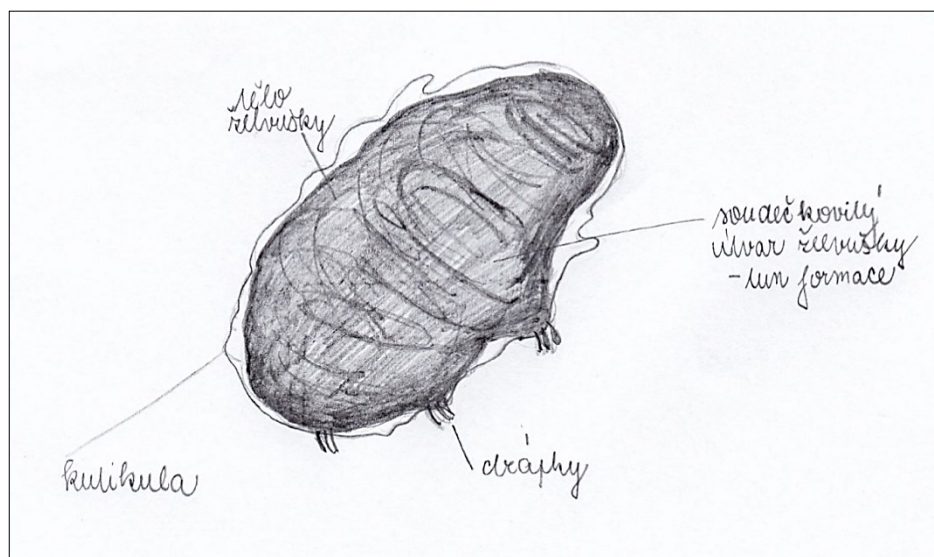 tělo
želvušky
soudečkovitý
útvar želvušky
- tun formace
kutikula
drápky